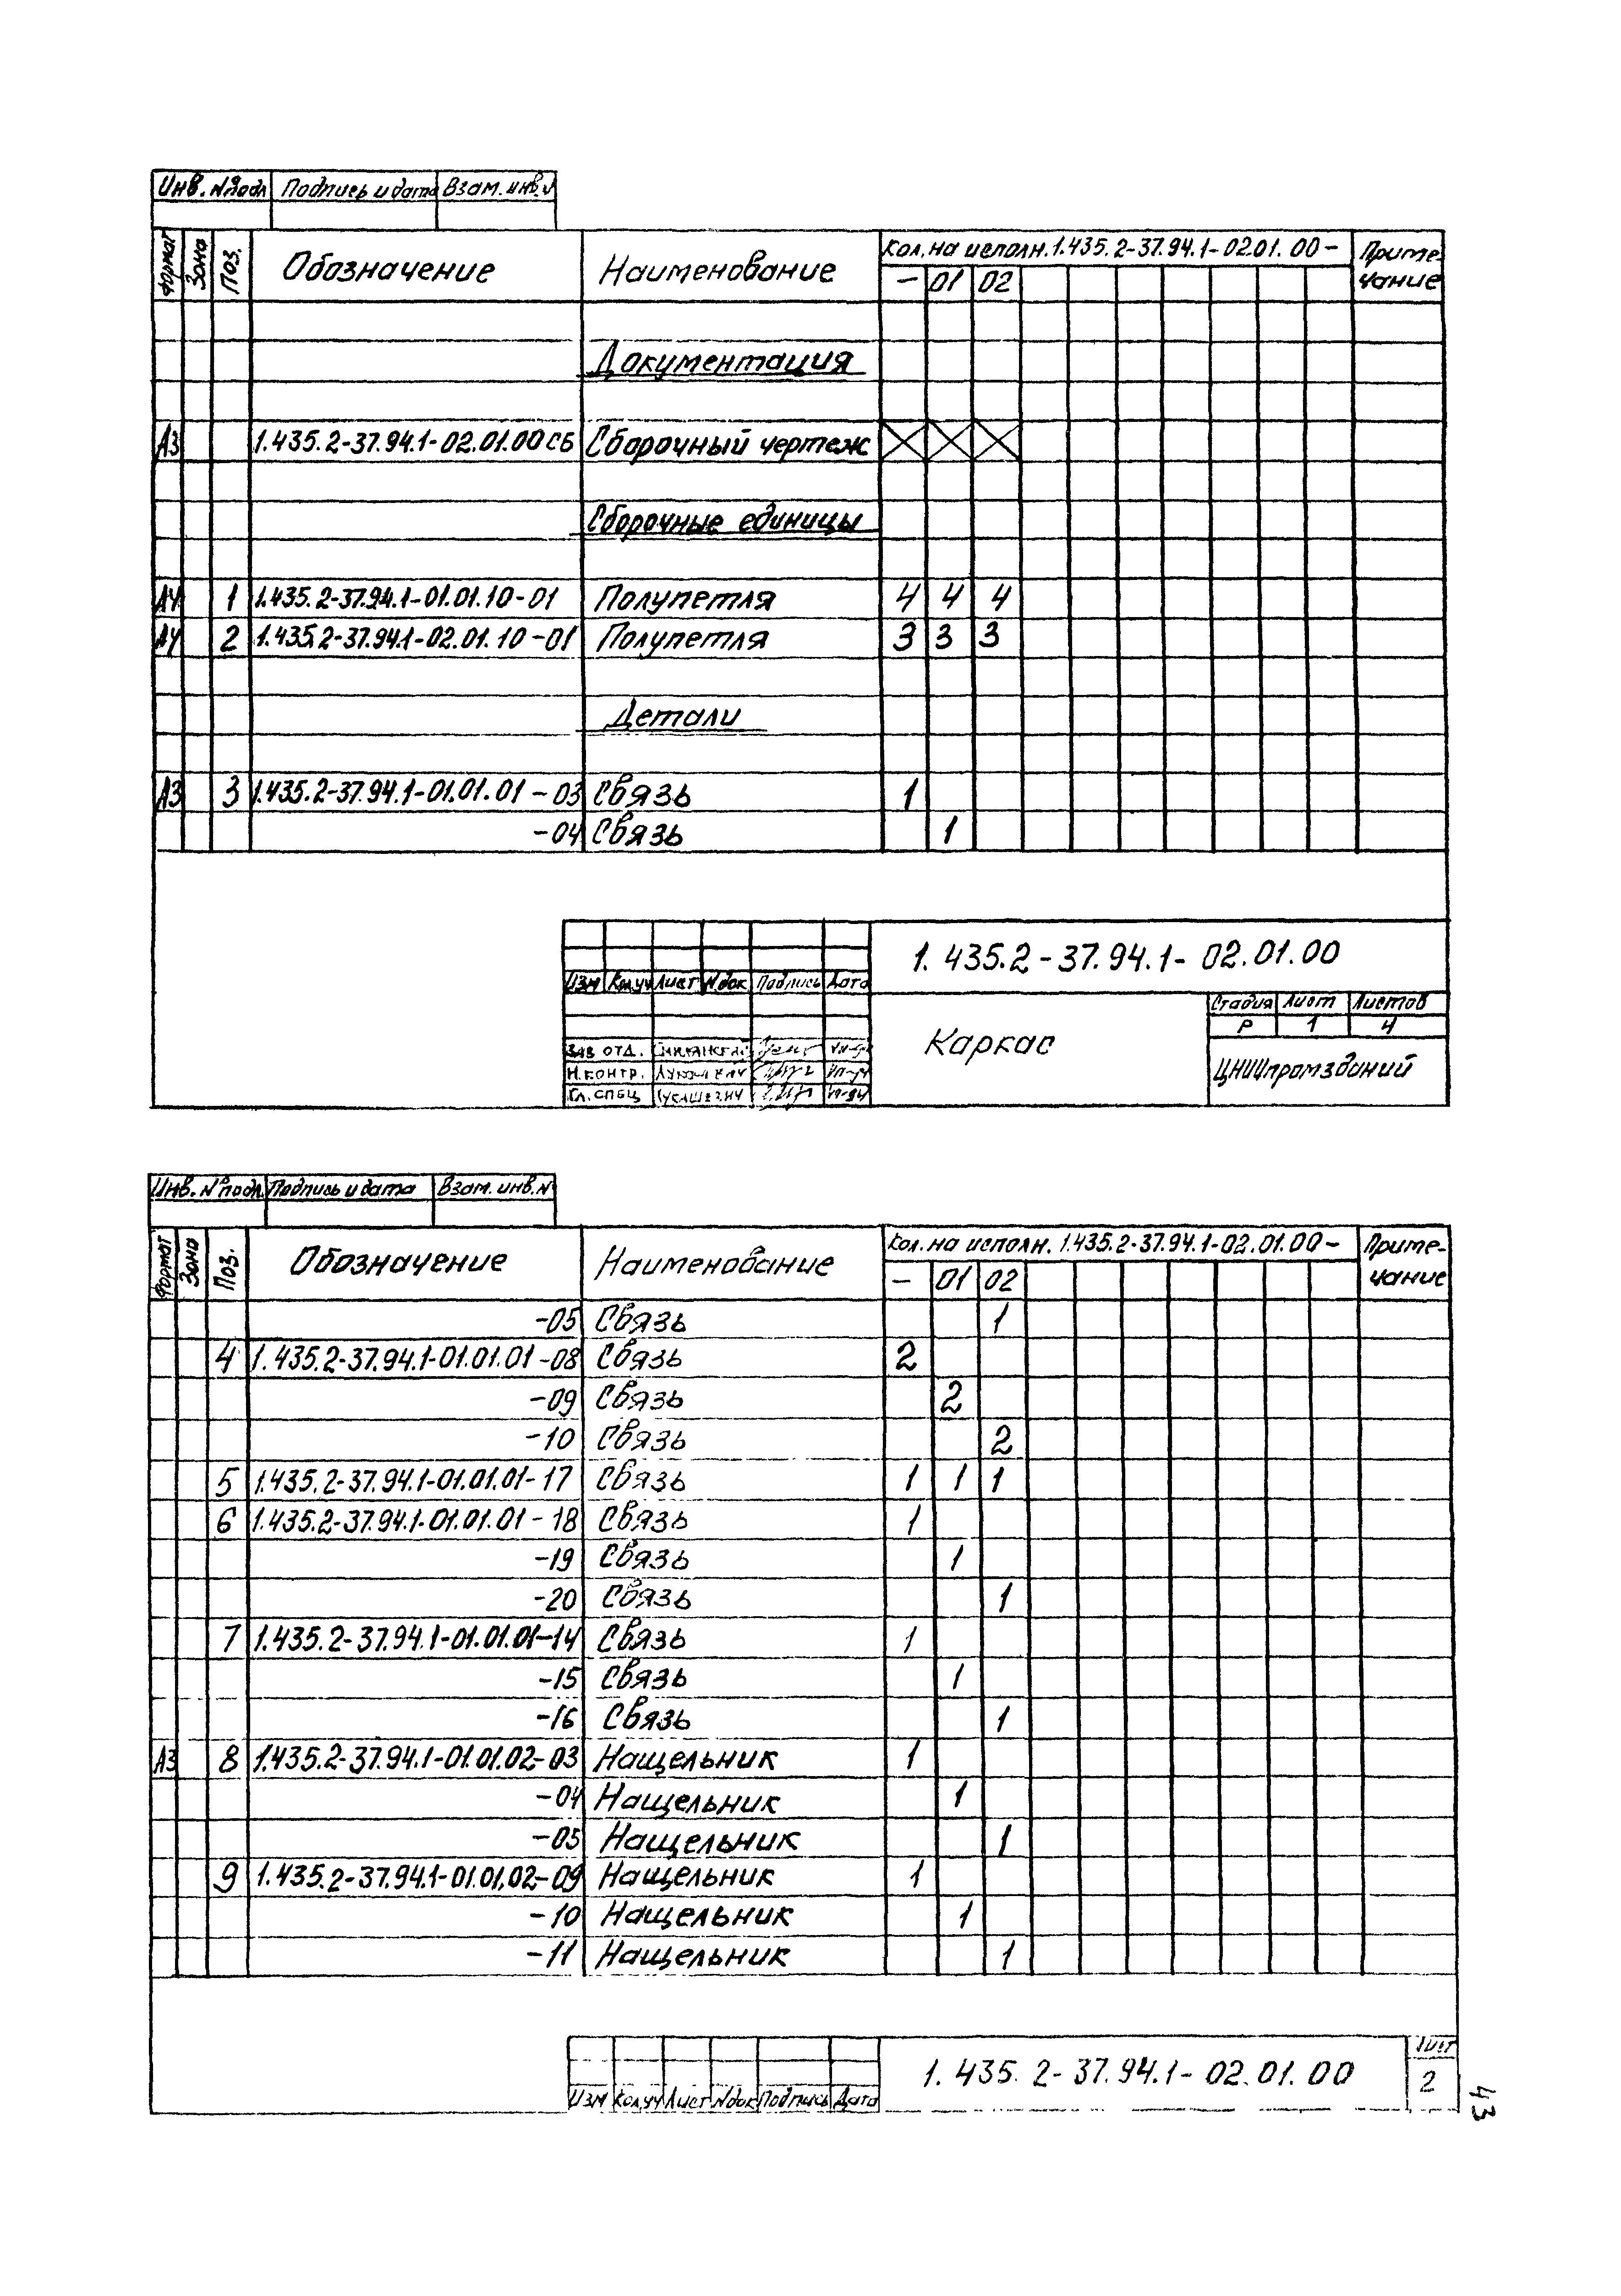 Инв. №подл Подпись и дата Взам. инв. №
Формат Зона Поз. Обозначение Наименование Кол. на исполн. 1.435.2-37.94.1-02.01.00- Приме-
- 01 02 чание
Документация
А3 1.435.2-37.94.1-02.01.00СБ Сборочный чертеж
Сборочные единицы
А4 1 1.435.2-37.94.1-01.01.10-01 Полупетля 4 4 4
А4 2 1.435.2-37.94.1-02.01.10-01 Полупетля 3 3 3
Детали
А3 3 1.435.2-37.94.1-01.01.01-03 Связь 1
-04 Связь 1
1.435.2-37.94.1-02.01.00
Изм Кол.уч Лист Nдок Подпись Дата
Каркас
Стадия Лист Листов
Р 1 4
ЦНИИпромзданий
Зав отд.
Н.контр.
Гл.спец
Инв. №подл. Подпись и дата Взам. инв. №
Формат Зона Поз. Обозначение Наименование Кол. на исполн. 1.435.2-37.94.1-02.01.00- Приме-
- 01 02 чание
-05 Связь 1
4 1.435.2-37.94.1-01.01.01-08 Связь 2
-09 Связь 2
-10 Связь 2
5 1.435.2-37.94.1-01.01.01-17 Связь 1 1 1
6 1.435.2-37.94.1-01.01.01-18 Связь 1
-19 Связь 1
-20 Связь 1
7 1.435.2-37.94.1-01.01.01-14 Связь 1
-15 Связь 1
-16 Связь 1
А3 8 1.435.2-37.94.1-01.01.02-03 Нащельник 1
-04 Нащельник 1
-05 Нащельник 1
9 1.435.2-37.94.1-01.01.02-09 Нащельник 1
-10 Нащельник 1
-11 Нащельник 1
1.435.2-37.94.1-02.01.00
Лист
2
Изм Кол.уч Лист Nдок Подпись Дата
43